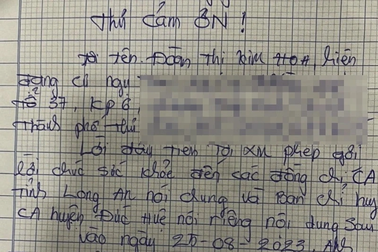 Thư Cảm ƠN !
Tôi Tên. Đoàn Thị Kim Hoa, hiện
đang cư ngụ
tổ 37, Kp 6,
Thành phố Thủ
Lời đầu tiên Tôi xin phép gởi
lời chúc sức khỏe đến các đồng chí CA
Tỉnh Long An nói chung và Ban chỉ huy
CA huyện Đức Huệ nói riêng nội dung sau
vào ngày 25-08-2023 Anh